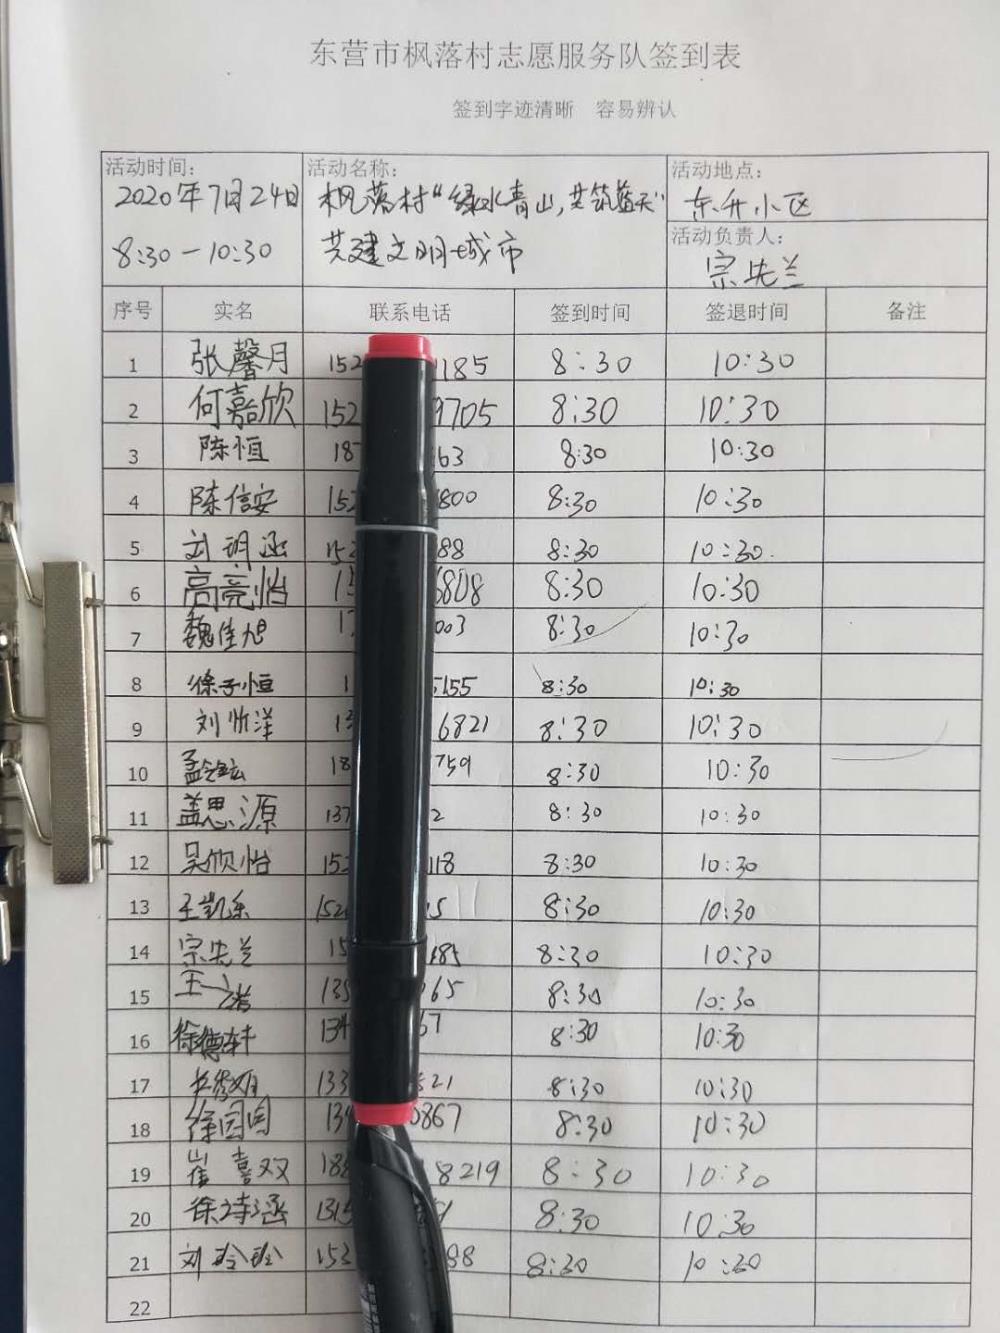 东营市枫落村志愿服务队签到表
签到字迹清晰 容易辨认
活动时间: 活动名称: 活动地点:
2020年7月24日 枫落村“绿水青山,共筑蓝天” 东升小区
8:30-10:30 共建文明城市 活动负责人:
宗先兰
序号 实名 联系电话 签到时间 签退时间 备注
1 张馨月 152 185 8:30 10:30
2 何嘉欣 152 9705 8:30 10:30
3 陈恒 187 163 8:30 10:30
4 陈信安 152 800 8:30 10:30
5 刘玥涵 152 88 8:30 10:30
6 高亮怡 6808 8:30 10:30
7 魏佳旭 003 8:30 10:30
8 徐子恒 1 5155 8:30 10:30
9 刘忻洋 13 6821 8:30 10:30
10 孟 18 759 8:30 10:30
11 盖思源 137 2 8:30 10:30
12 吴欣怡 152 118 8:30 10:30
13 王凯乐 152 15 8:30 10:30
14 宗先兰 15 185 8:30 10:30
15 王一诺 139 65 8:30 10:30
16 徐德轩 134 67 8:30 10:30
17 133 21 8:30 10:30
18 徐园园 134 0867 8:30 10:30
19 崔喜双 188 8219 8:30 10:30
20 徐诗涵 1315 8:30 10:30
21 刘玲玲 153 88 8:30 10:30
22